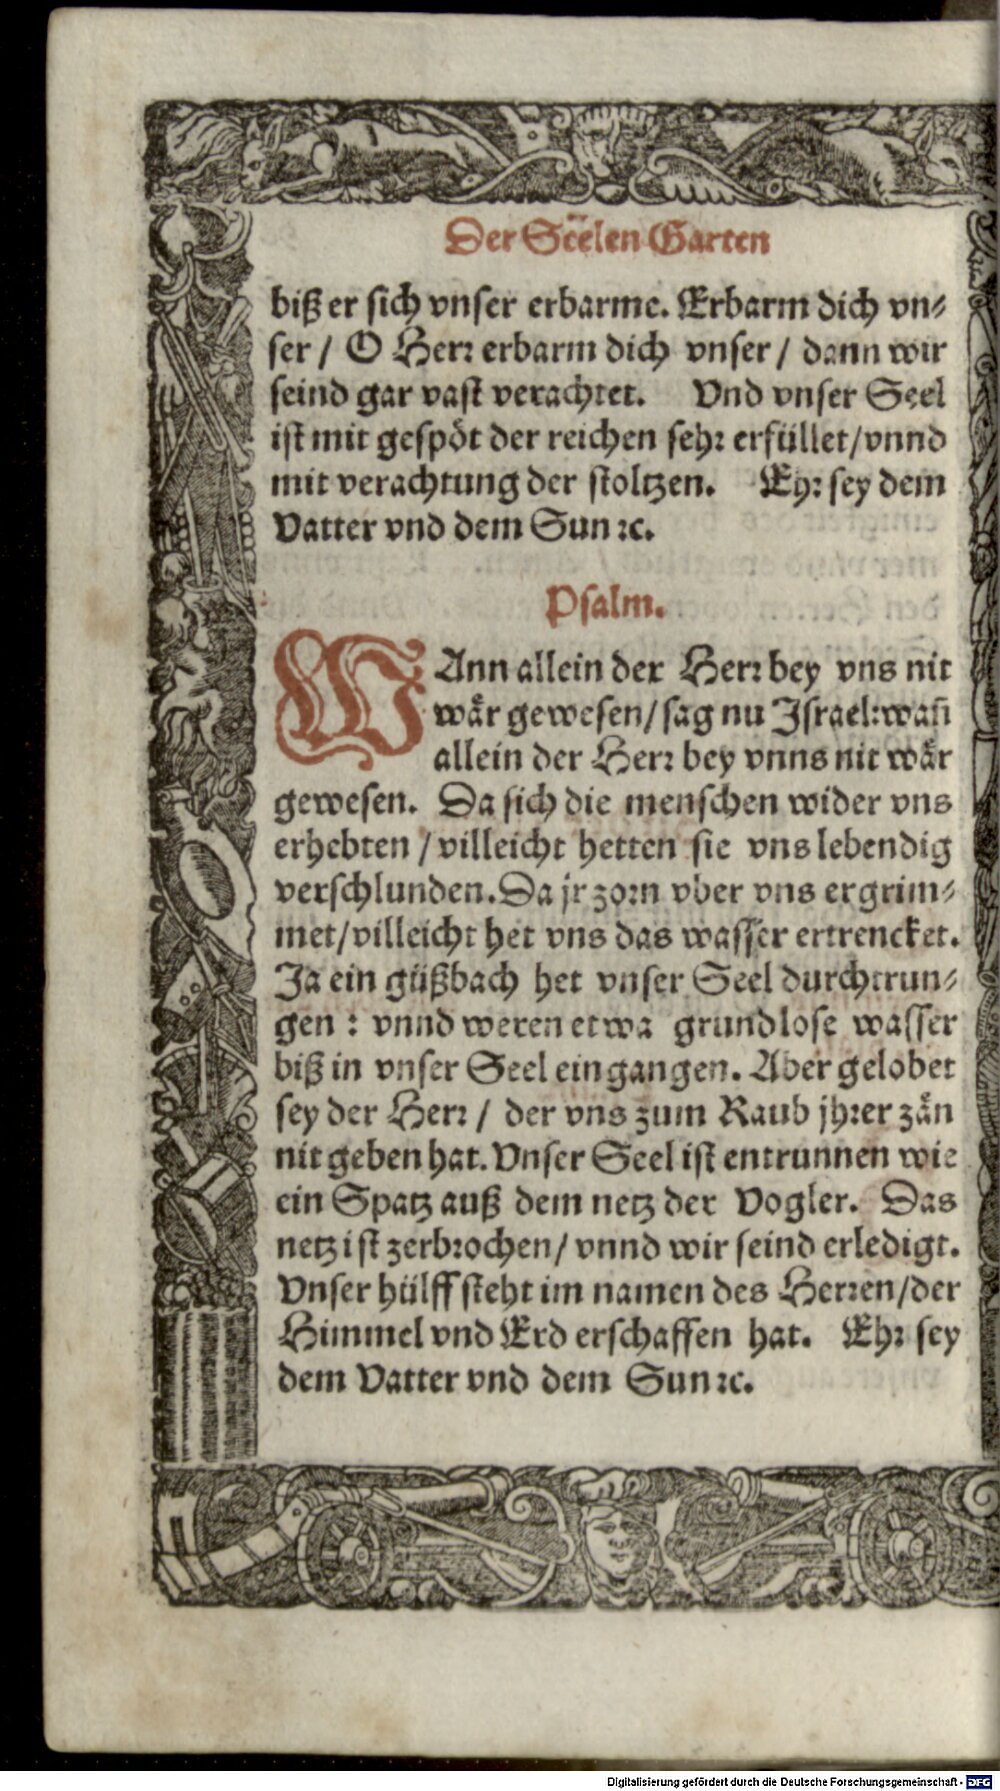 Der Seelen Garten
biß er sich vnser erbarme. Erbarm dich vn⸗
ser / O Herr erbarm dich vnser / dann wir
seind gar vast verachtet. Vnd vnser Seel
ist mit gespöt der reichen sehr erfüllet/vnnd
mit verachtung der stoltzen. Ehr sey dem
Vatter vnd dem Sun ꝛc.
Psalm.
WAnn allein der Herr bey vns nit
wär gewesen/sag nu Israel:wañ
allein der Herr bey vnns nit wär
gewesen. Da sich die menschen wider vns
erhebten /villeicht hetten sie vns lebendig
verschlunden. Da jr zorn vber vns ergrim⸗
met/villeicht het vns das wasser ertrencket.
Ja ein güßbach het vnser Seel durchtrun⸗
gen : vnnd weren etwa grundlose wasser
biß in vnser Seel eingangen. Aber gelobet
sey der Herr / der vns zum Raub jhrer zän
nit geben hat. Vnser Seel ist entrunnen wie
ein Spatz auß dem netz der Vogler. Das
netz ist zerbrochen/ vnnd wir seind erledigt.
Vnser hülff steht im namen des Herren/der
Himmel vnd Erd erschaffen hat. Ehr sey
dem Vatter vnd dem Sun ꝛc.
Digitalisierung gefördert durch die Deutsche Forschungsgemeinschaft - DFG